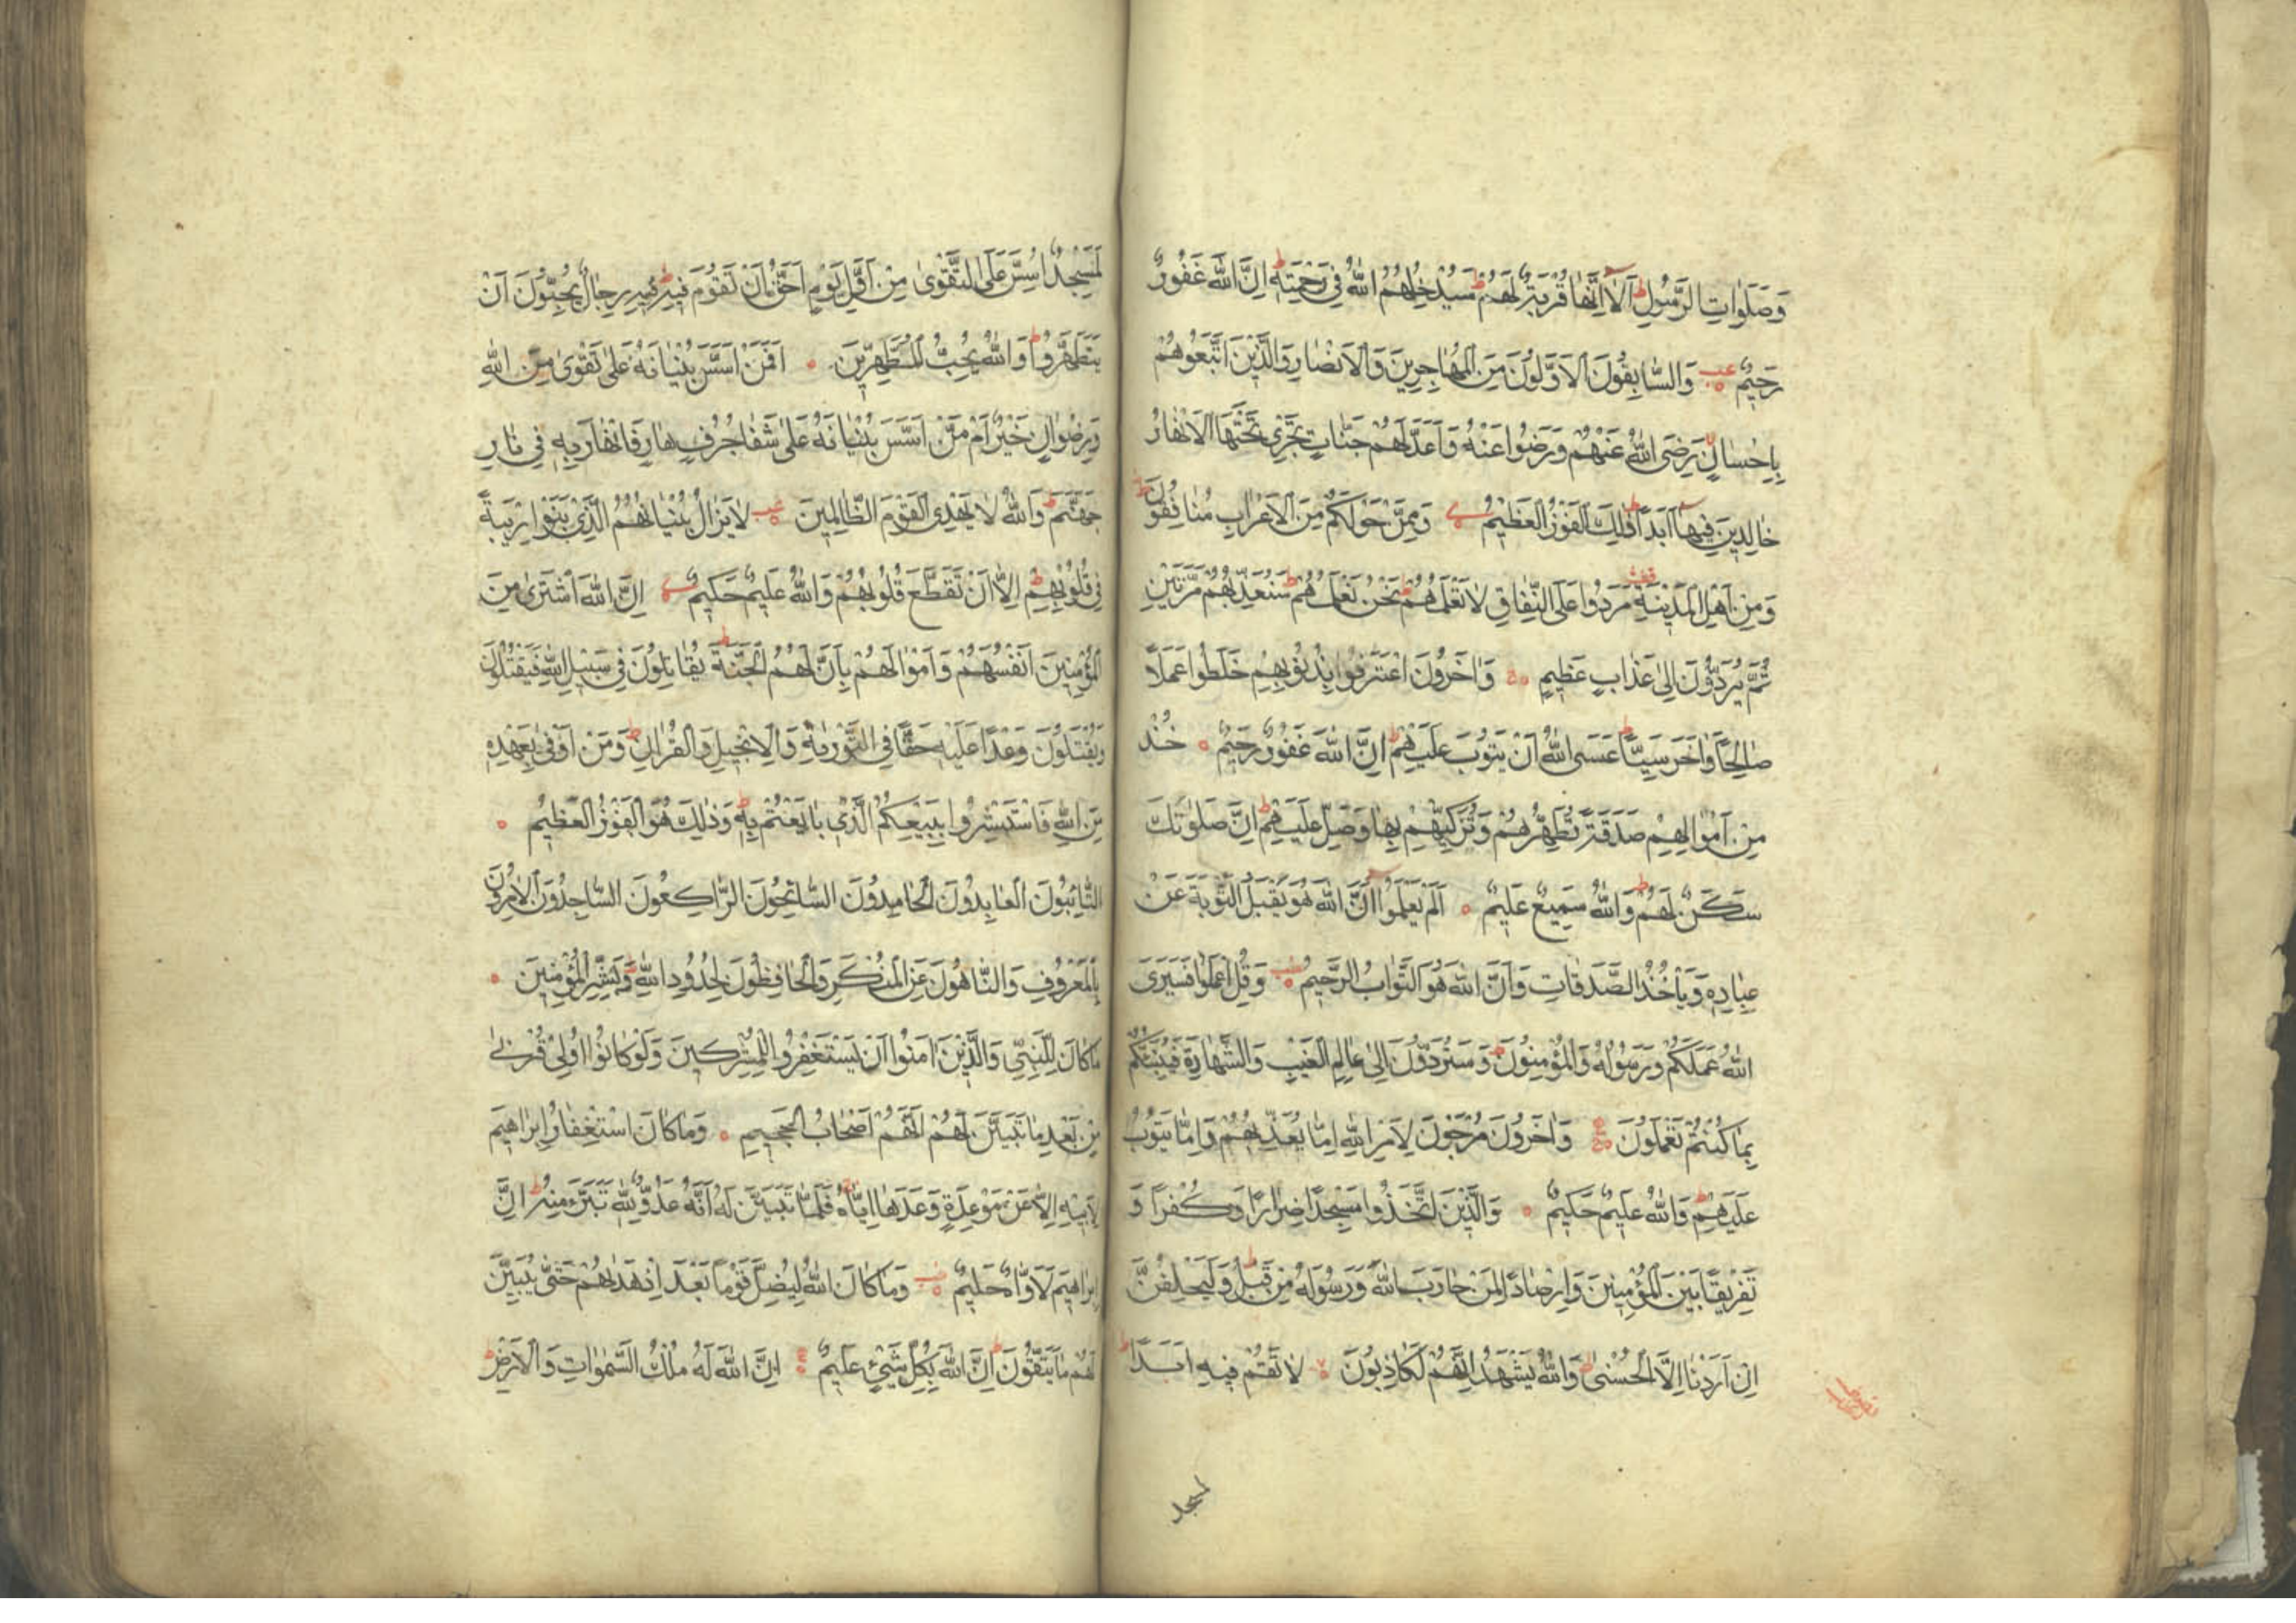 وَصَلَوَاتِ الرَّسُولِ اَلَا اِنَّهَا قُرْبَةٌ لَهُمْ سَيُدْخِلُهُمُ اللّٰهُ فِى رَحْمَتِهِ اِنَّ اللّٰهَ غَفُورٌ
رَحِيمٌ وَالسَّابِقُونَ الْاَوَّلُونَ مِنَ الْمُهَاجِرِينَ وَالْاَنْصَارِ وَالَّذِينَ اتَّبَعُوهُمْ
بِاِحْسَانٍ رَضِىَ اللّٰهُ عَنْهُمْ وَرَضُوا عَنْهُ وَاَعَدَّ لَهُمْ جَنَّاتٍ تَجْرِى تَحْتَهَا الْاَنْهَارُ
خَالِدِينَ فِيهَا اَبَدًا ذٰلِكَ الْفَوْزُ الْعَظِيمُ وَمِمَّنْ حَوْلَكُمْ مِنَ الْاَعْرَابِ مُنَافِقُونَ
وَمِنْ اَهْلِ الْمَدِينَةِ مَرَدُوا عَلَى النِّفَاقِ لَا تَعْلَمُهُمْ نَحْنُ نَعْلَمُهُمْ سَنُعَذِّبُهُمْ مَرَّتَيْنِ
ثُمَّ يُرَدُّونَ اِلٰى عَذَابٍ عَظِيمٍ وَاٰخَرُونَ اعْتَرَفُوا بِذُنُوبِهِمْ خَلَطُوا عَمَلًا
صَالِحًا وَاٰخَرَ سَيِّئًا عَسَى اللّٰهُ اَنْ يَتُوبَ عَلَيْهِمْ اِنَّ اللّٰهَ غَفُورٌ رَحِيمٌ خُذْ
مِنْ اَمْوَالِهِمْ صَدَقَةً تُطَهِّرُهُمْ وَتُزَكِّيهِمْ بِهَا وَصَلِّ عَلَيْهِمْ اِنَّ صَلٰوتَكَ
سَكَنٌ لَهُمْ وَاللّٰهُ سَمِيعٌ عَلِيمٌ اَلَمْ يَعْلَمُوا اَنَّ اللّٰهَ هُوَ يَقْبَلُ التَّوْبَةَ عَنْ
عِبَادِهِ وَيَأْخُذُ الصَّدَقَاتِ وَاَنَّ اللّٰهَ هُوَ التَّوَّابُ الرَّحِيمُ وَقُلِ اعْمَلُوا فَسَيَرَى
اللّٰهُ عَمَلَكُمْ وَرَسُولُهُ وَالْمُؤْمِنُونَ وَسَتُرَدُّونَ اِلٰى عَالِمِ الْغَيْبِ وَالشَّهَادَةِ فَيُنَبِّئُكُمْ
بِمَا كُنْتُمْ تَعْمَلُونَ وَاٰخَرُونَ مُرْجَوْنَ لِاَمْرِ اللّٰهِ اِمَّا يُعَذِّبُهُمْ وَاِمَّا يَتُوبُ
عَلَيْهِمْ وَاللّٰهُ عَلِيمٌ حَكِيمٌ وَالَّذِينَ اتَّخَذُوا مَسْجِدًا ضِرَارًا وَكُفْرًا وَ
تَفْرِيقًا بَيْنَ الْمُؤْمِنِينَ وَاِرْصَادًا لِمَنْ حَارَبَ اللّٰهَ وَرَسُولَهُ مِنْ قَبْلُ وَلَيَحْلِفُنَّ
اِنْ اَرَدْنَا اِلَّا الْحُسْنٰى وَاللّٰهُ يَشْهَدُ اِنَّهُمْ لَكَاذِبُونَ لَا تَقُمْ فِيهِ اَبَدًا
لمسجد
لَمَسْجِدٌ اُسِّسَ عَلَى التَّقْوٰى مِنْ اَوَّلِ يَوْمٍ اَحَقُّ اَنْ تَقُومَ فِيهِ فِيهِ رِجَالٌ يُحِبُّونَ اَنْ
يَتَطَهَّرُوا وَاللّٰهُ يُحِبُّ الْمُطَّهِّرِينَ اَفَمَنْ اَسَّسَ بُنْيَانَهُ عَلٰى تَقْوٰى مِنَ اللّٰهِ
وَرِضْوَانٍ خَيْرٌ اَمْ مَنْ اَسَّسَ بُنْيَانَهُ عَلٰى شَفَا جُرُفٍ هَارٍ فَانْهَارَ بِهِ فِى نَارِ
جَهَنَّمَ وَاللّٰهُ لَا يَهْدِى الْقَوْمَ الظَّالِمِينَ لَا يَزَالُ بُنْيَانُهُمُ الَّذِى بَنَوْا رِيبَةً
فِى قُلُوبِهِمْ اِلَّا اَنْ تَقَطَّعَ قُلُوبُهُمْ وَاللّٰهُ عَلِيمٌ حَكِيمٌ اِنَّ اللّٰهَ اشْتَرٰى مِنَ
الْمُؤْمِنِينَ اَنْفُسَهُمْ وَاَمْوَالَهُمْ بِاَنَّ لَهُمُ الْجَنَّةَ يُقَاتِلُونَ فِى سَبِيلِ اللّٰهِ فَيَقْتُلُونَ
وَيُقْتَلُونَ وَعْدًا عَلَيْهِ حَقًّا فِى التَّوْرٰيةِ وَالْاِنْجِيلِ وَالْقُرْاٰنِ وَمَنْ اَوْفٰى بِعَهْدِهِ
مِنَ اللّٰهِ فَاسْتَبْشِرُوا بِبَيْعِكُمُ الَّذِى بَايَعْتُمْ بِهِ وَذٰلِكَ هُوَ الْفَوْزُ الْعَظِيمُ
التَّائِبُونَ الْعَابِدُونَ الْحَامِدُونَ السَّائِحُونَ الرَّاكِعُونَ السَّاجِدُونَ الْاٰمِرُونَ
بِالْمَعْرُوفِ وَالنَّاهُونَ عَنِ الْمُنْكَرِ وَالْحَافِظُونَ لِحُدُودِ اللّٰهِ وَبَشِّرِ الْمُؤْمِنِينَ
مَا كَانَ لِلنَّبِىِّ وَالَّذِينَ اٰمَنُوا اَنْ يَسْتَغْفِرُوا لِلْمُشْرِكِينَ وَلَوْ كَانُوا اُولِى قُرْبٰى
مِنْ بَعْدِ مَا تَبَيَّنَ لَهُمْ اَنَّهُمْ اَصْحَابُ الْجَحِيمِ وَمَا كَانَ اسْتِغْفَارُ اِبْرَاهِيمَ
لِاَبِيهِ اِلَّا عَنْ مَوْعِدَةٍ وَعَدَهَا اِيَّاهُ فَلَمَّا تَبَيَّنَ لَهُ اَنَّهُ عَدُوٌّ لِلّٰهِ تَبَرَّءَ مِنْهُ اِنَّ
اِبْرَاهِيمَ لَاَوَّاهٌ حَلِيمٌ وَمَا كَانَ اللّٰهُ لِيُضِلَّ قَوْمًا بَعْدَ اِذْ هَدٰيهُمْ حَتّٰى يُبَيِّنَ
لَهُمْ مَا يَتَّقُونَ اِنَّ اللّٰهَ بِكُلِّ شَىْءٍ عَلِيمٌ اِنَّ اللّٰهَ لَهُ مُلْكُ السَّمٰوَاتِ وَالْاَرْضِ